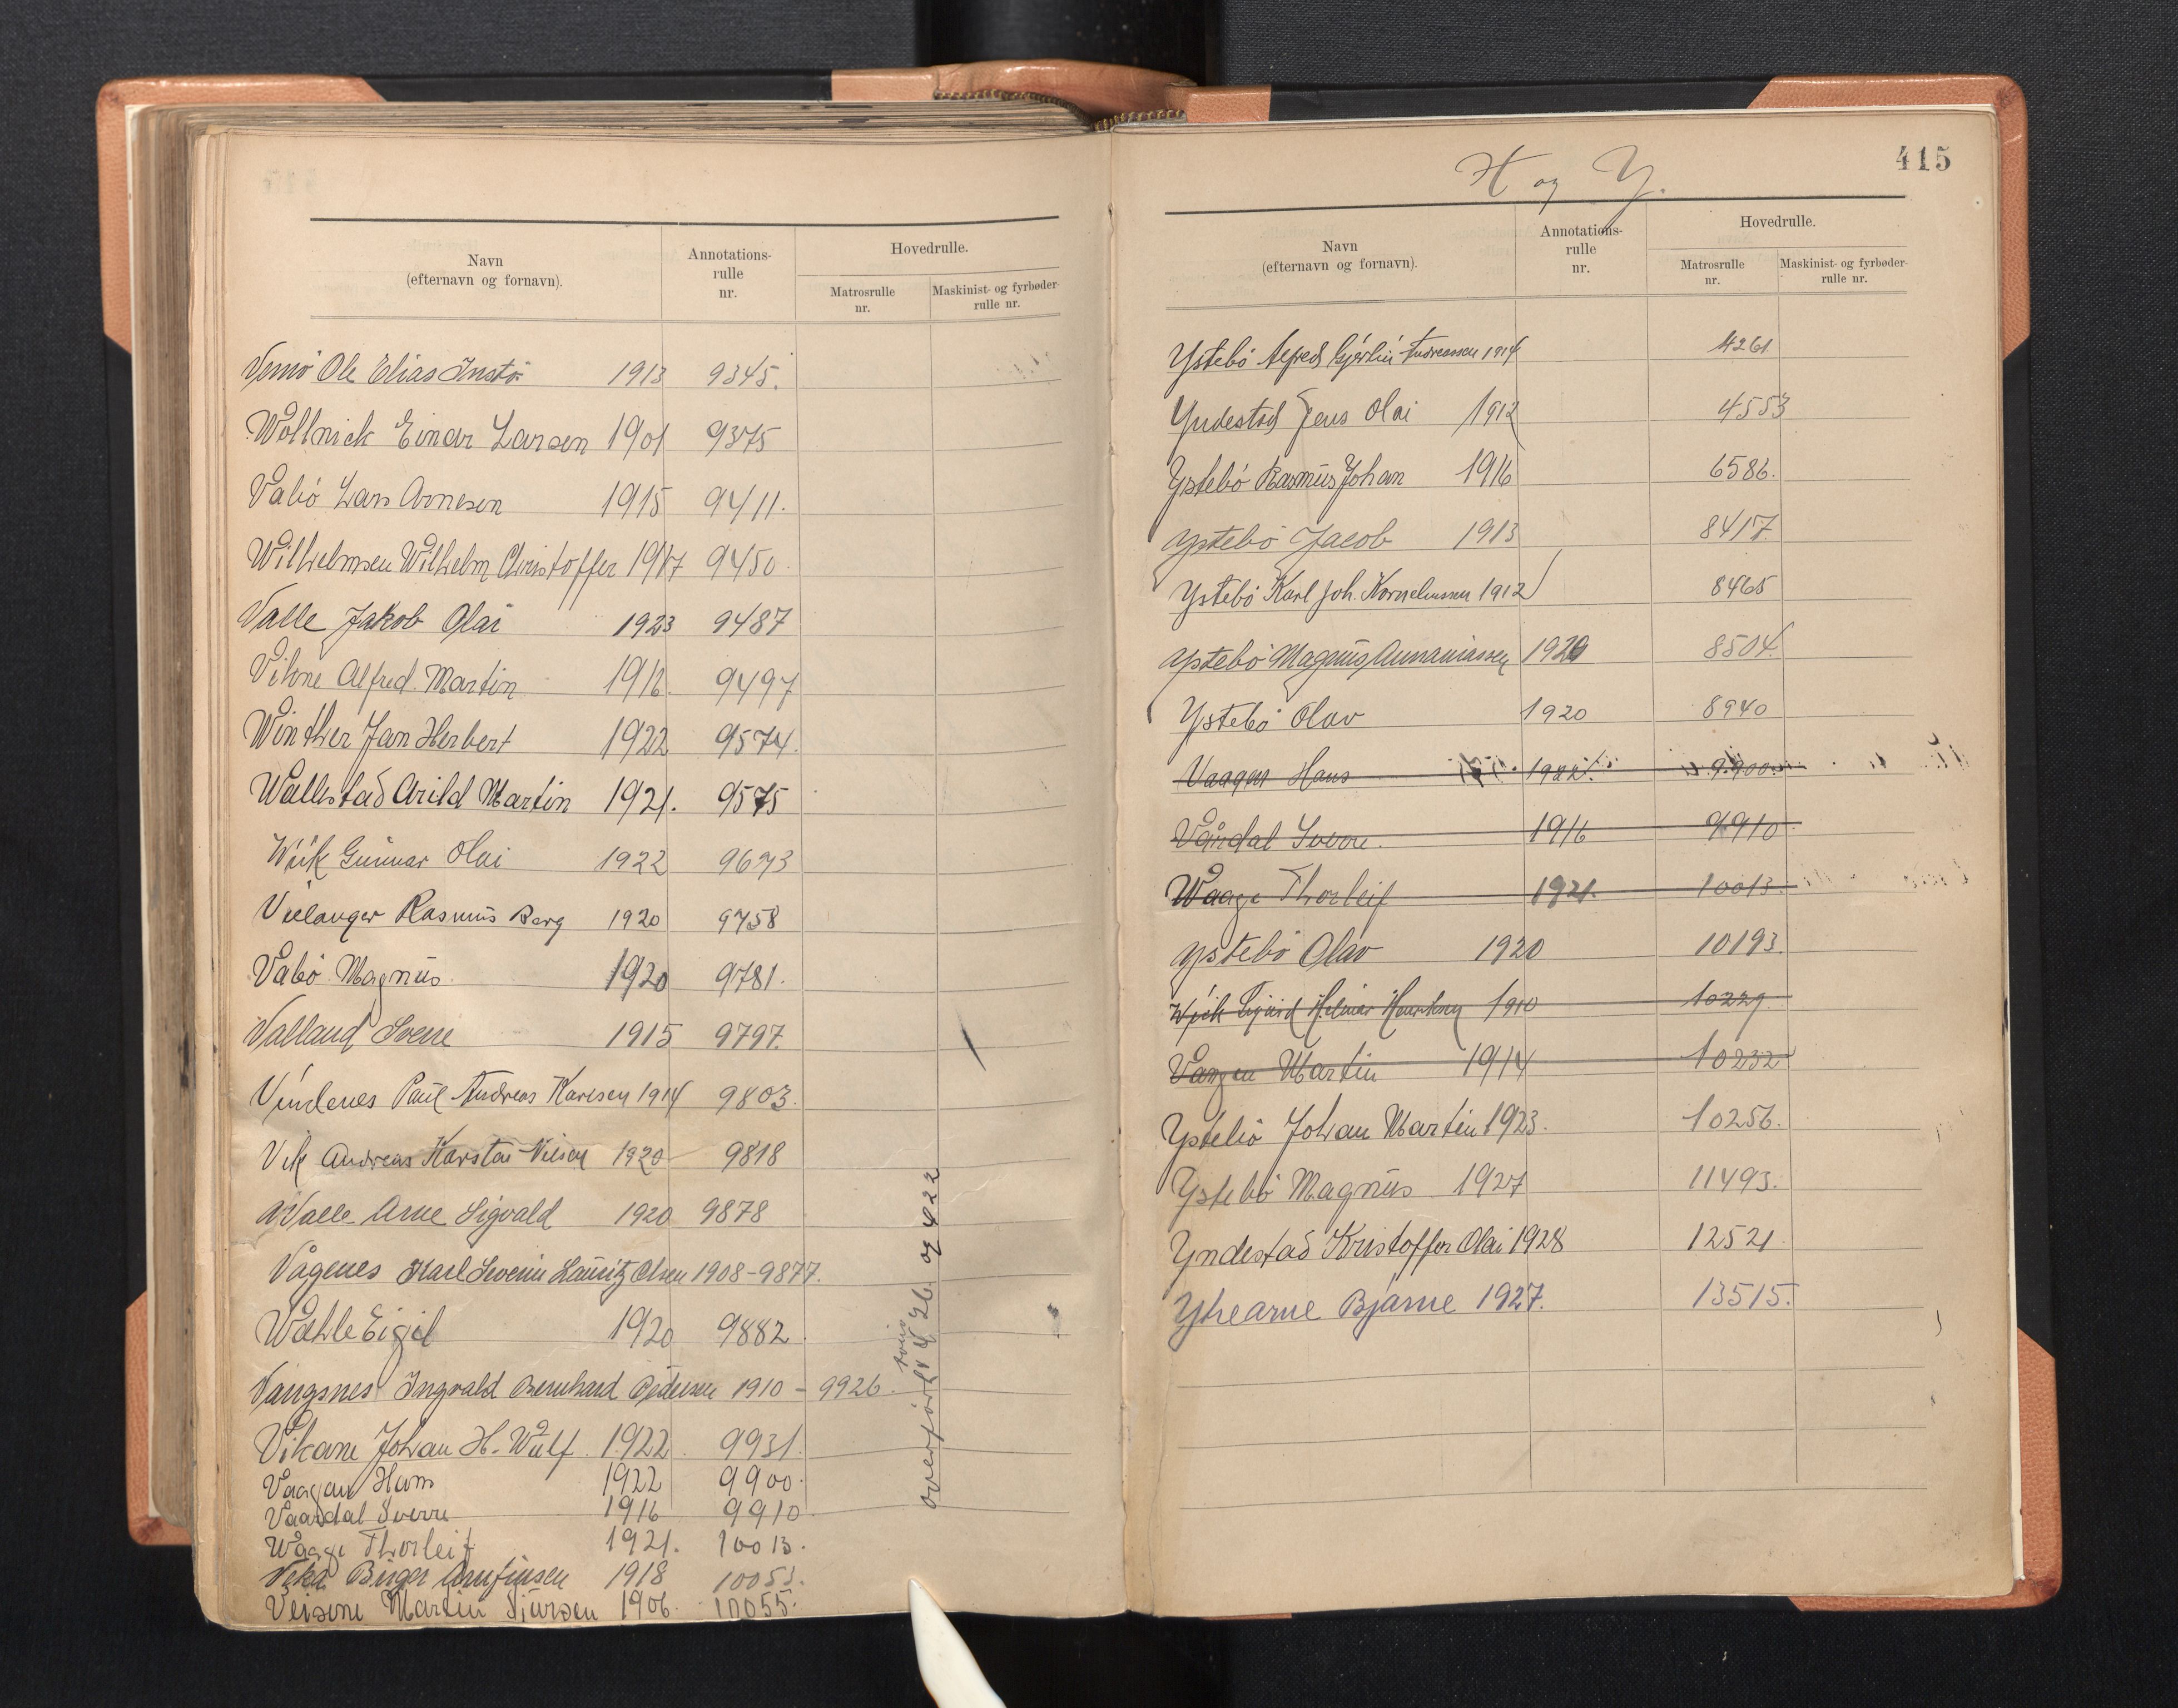 Navn
(efternavn og fornavn).
Annotations-
rulle
nr.
Hovedrulle.
Matrosrulle
nr.
Maskinist- og fyrbøder-
rulle nr.
Ole Elias 1913 9345.
Wollnick Einar Larsen 1901 9375
Vabö Lars Arnesen 1915 9411.
Wilhelmsen Wilhelm Christoffer 1917 9450
Valle Jakob Olai 1923 9487
Vikne Alfred Martin 1916. 9497
Winther Jan Herbert 1922 9574.
Wallestad Arild Martin 1921. 9575
Wiik Gunnar Olai 1922 9673
Rasmus Berg 1920 9758
Vabö Magnus 1920 9781.
Valland Sverre 1915 9797.
Vindenes Paul Andreas Karlsen 1914 9803.
Vik Andreas Karsten Nilsen 1920 9818
Valle Arne Sigvald 1920 9878
Vågenes Karl Severin Lauritz Olsen 1908-9877.
Wahle Eigil 1920 9882
Vangsnes Ingvald Bernhard Pedersen 1910 - 9926.
Vikane Johan H. Wulf 1922. 9931.
Vaagan Hans 1922 9900.
Vaardal Sverre 1916 9910
Waage Thorleif 1921. 10013.
Birger Arnfinsen 1918 10053.
Martin Sjursen 1906. 10055.
overført 426 og 422
H og Y.
415
Navn
(efternavn og fornavn).
Annotations-
rulle
nr.
Hovedrulle.
Matrosrulle
nr.
Maskinist- og fyrbøder-
rulle nr.
Ystebö Alfred Andreassen 1914 4261
Yndestad Jens Olai 1912 4553
Ystebö Rasmus Johan 1916 6586.
Ystebö Jacob 1913 8417
Ystebö Karl Joh. Korneliussen 1912 8465
Ystebö Magnus Annaniassen 1920 8504.
Ystebö Olav 1920 8940
Vaagen Hans 1922. 9900.
Vårdal Sverre. 1916 9910.
Waage Thorleif 1921. 10013.
Ystebö Olav 1920 10193.
Wiik Sigurd Helmer 1910 10229.
Vangen Martin 1914 10232
Ystebö Johan Martin 1923. 10256.
Ystebö Magnus 1927 11493.
Yndestad Kristoffer Olai 1928 12521
Ytrearne Bjarne 1927. 13515.